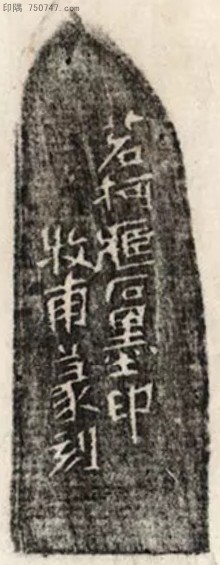 印隅 750747.com
若柯石墨印
牧甫篆刻